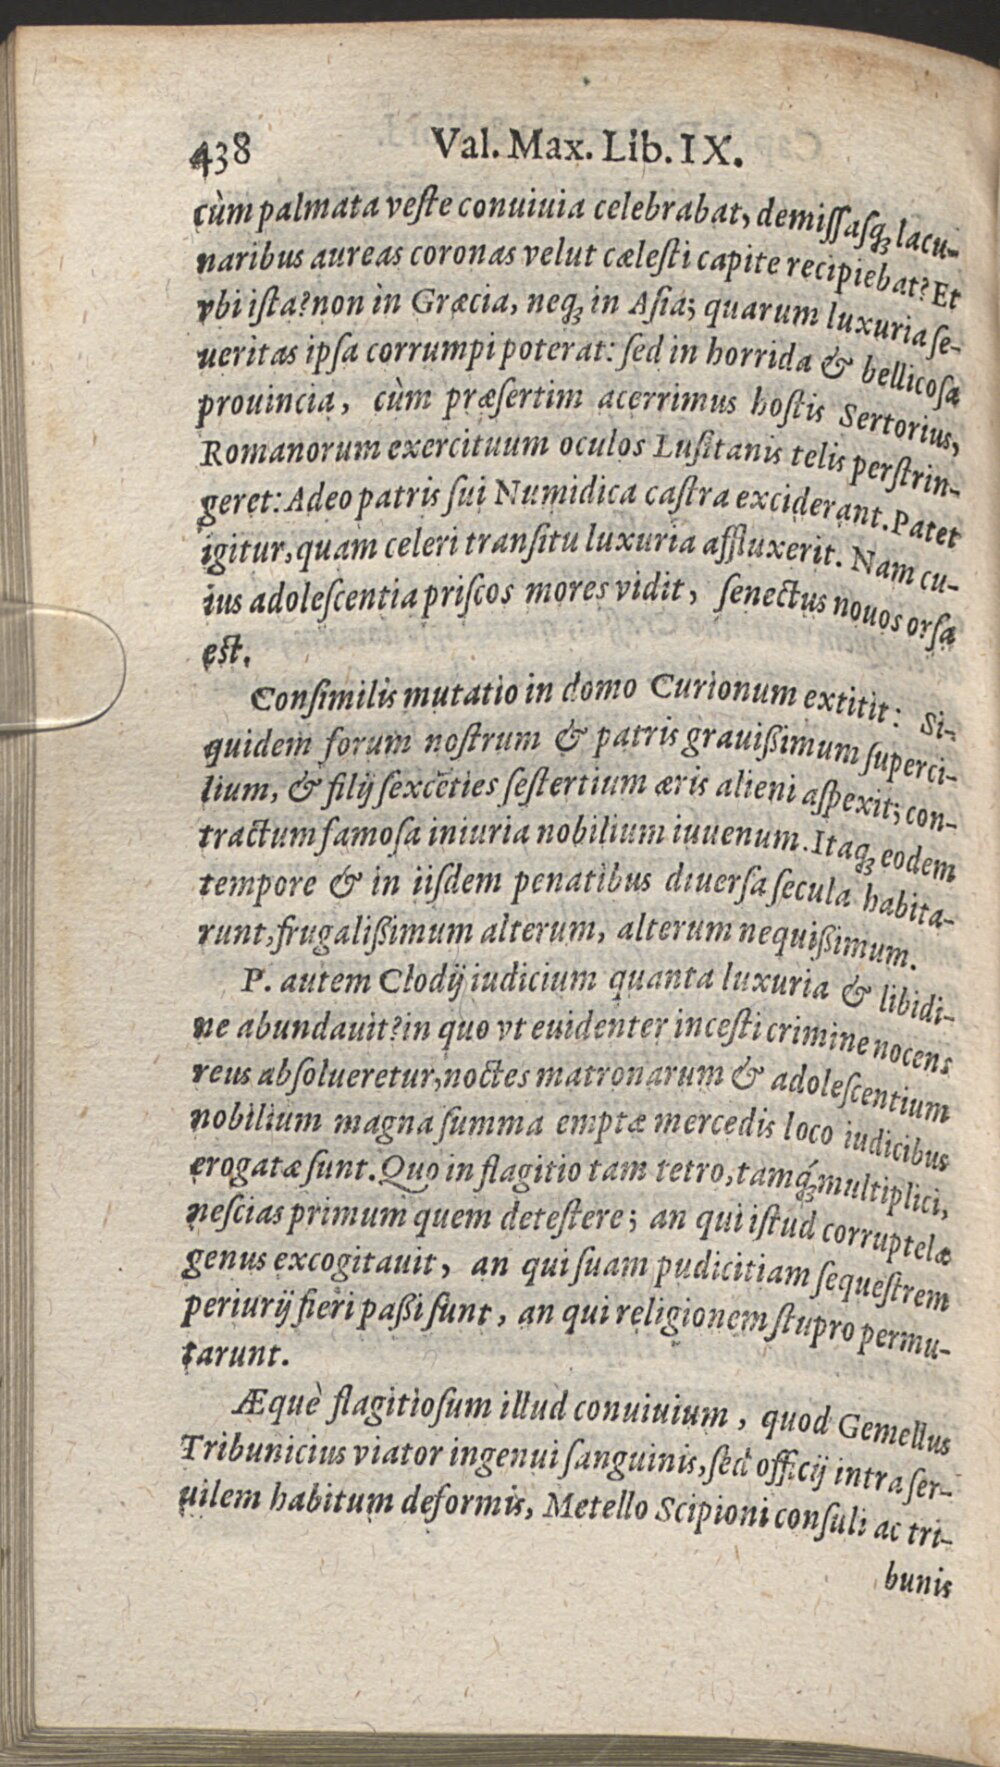 438 Val. Max. Lib. IX.
cùm palmata veſte conuiuia celebrabat, demiſſaſq; lacu-
naribus aureas coronas velut cæleſti capite recipiebat? Et
vbi iſta? non in Græcia, neq; in Aſia; quarum luxuria ſe-
ueritas ipſa corrumpi poterat: ſed in horrida & bellicoſa
prouincia, cùm præſertim acerrimus hoſtis Sertorius,
Romanorum exercituum oculos Luſitanis telis perſtrin-
geret: Adeo patris ſui Numidica caſtra exciderant. Patet
igitur, quam celeri tranſitu luxuria affluxerit. Nam cu-
ius adoleſcentia priſcos mores vidit, ſenectus nouos orſa
eſt.
Conſimilis mutatio in domo Curionum extitit: Si-
quidem forum noſtrum & patris grauißimum ſuperci-
lium, & filij ſexcẽties ſeſtertium æris alieni aſpexit; con-
tractum famoſa iniuria nobilium iuuenum. Itaq; eodem
tempore & in iiſdem penatibus diuerſa ſecula habita-
runt, frugalißimum alterum, alterum nequißimum.
P. autem Clodij iudicium quanta luxuria & libidi-
ne abundauit? in quo vt euidenter inceſti crimine nocens
reus abſolueretur, noctes matronarum & adoleſcentium
nobilium magna ſumma emptæ mercedis loco iudicibus
erogatæ ſunt. Quo in flagitio tam tetro, tamq́; multiplici,
neſcias primum quem deteſtere; an qui iſtud corruptelæ
genus excogitauit, an qui ſuam pudicitiam ſequeſtrem
periurij fieri paßi ſunt, an qui religionem ſtupro permu-
tarunt.
Æquè flagitioſum illud conuiuium, quod Gemellus
Tribunicius viator ingenui ſanguinis, ſed officij intra ſer-
uilem habitum deformis, Metello Scipioni conſuli ac tri-
bunis